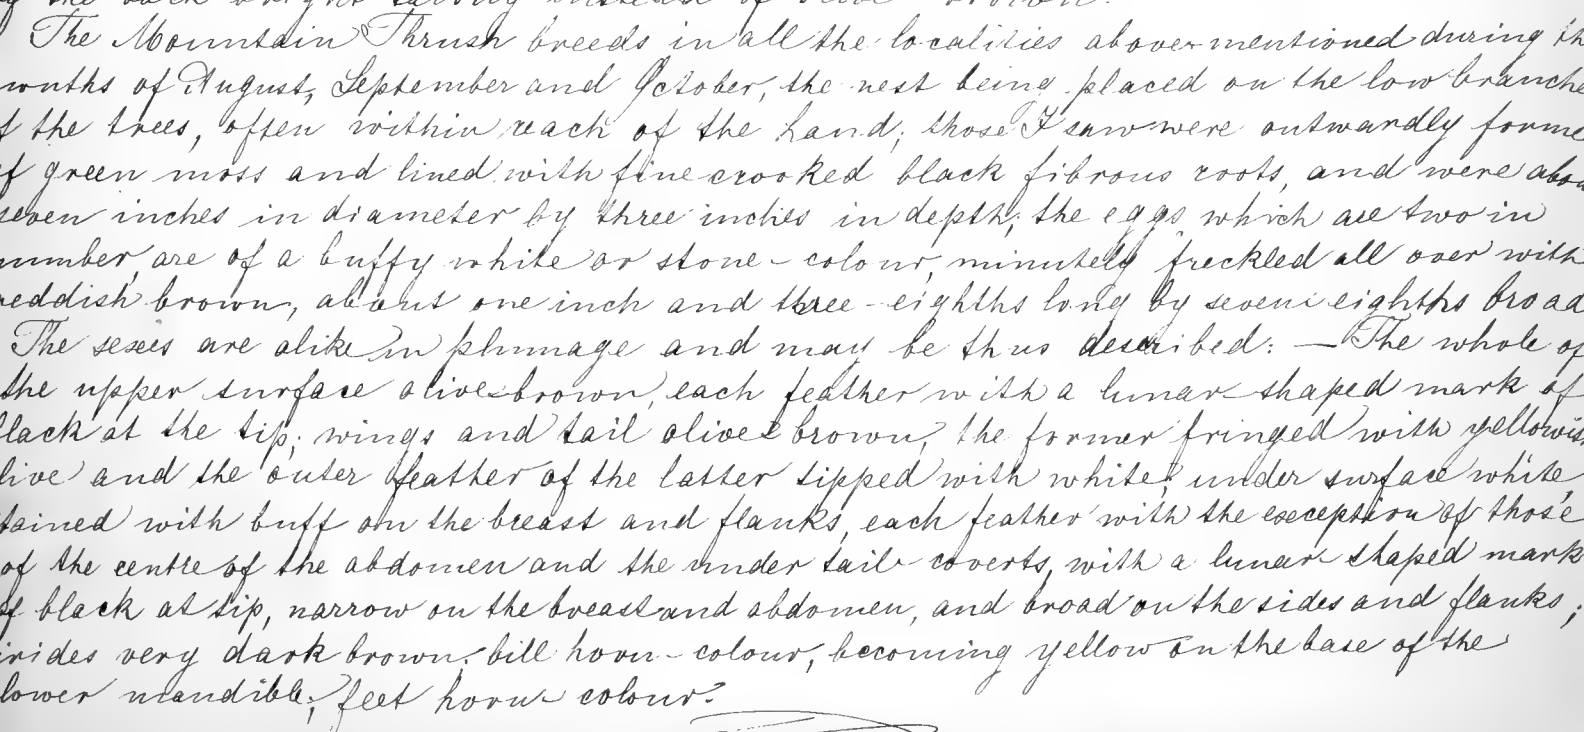 the back bright tawny instead of olive brown.
The Mountain Thrush breeds in all the localities above-mentioned during th
months of August, September and October, the nest being placed on the low branche
f the trees, often within reach of the hand; those I saw were outwardly forme
f green moss and lined with fine crooked black fibrous roots, and were abou
seven inches in diameter by three inches in depth; the eggs which are two in
number, are of a buffy white or stone-colour, minutely freckled all over with
reddish brown, about one inch and three-eighths long by seven eighths broad
The sexes are alike in plumage and may be thus described: — The whole of
the upper surface olive-brown, each feather with a lunar-shaped mark of
lack at the tip; wings and tail olive brown, the former fringed with yellowis
live and the outer feather of the latter tipped with white; under surface white,
tained with buff on the breast and flanks, each feather with the exception of those
of the centre of the abdomen and the under tail-coverts, with a lunar-shaped mark
of black at tip, narrow on the breast and abdomen, and broad on the sides and flanks;
irides very dark brown; bill horn-colour, becoming yellow on the base of the
lower mandible; feet horn-colour.